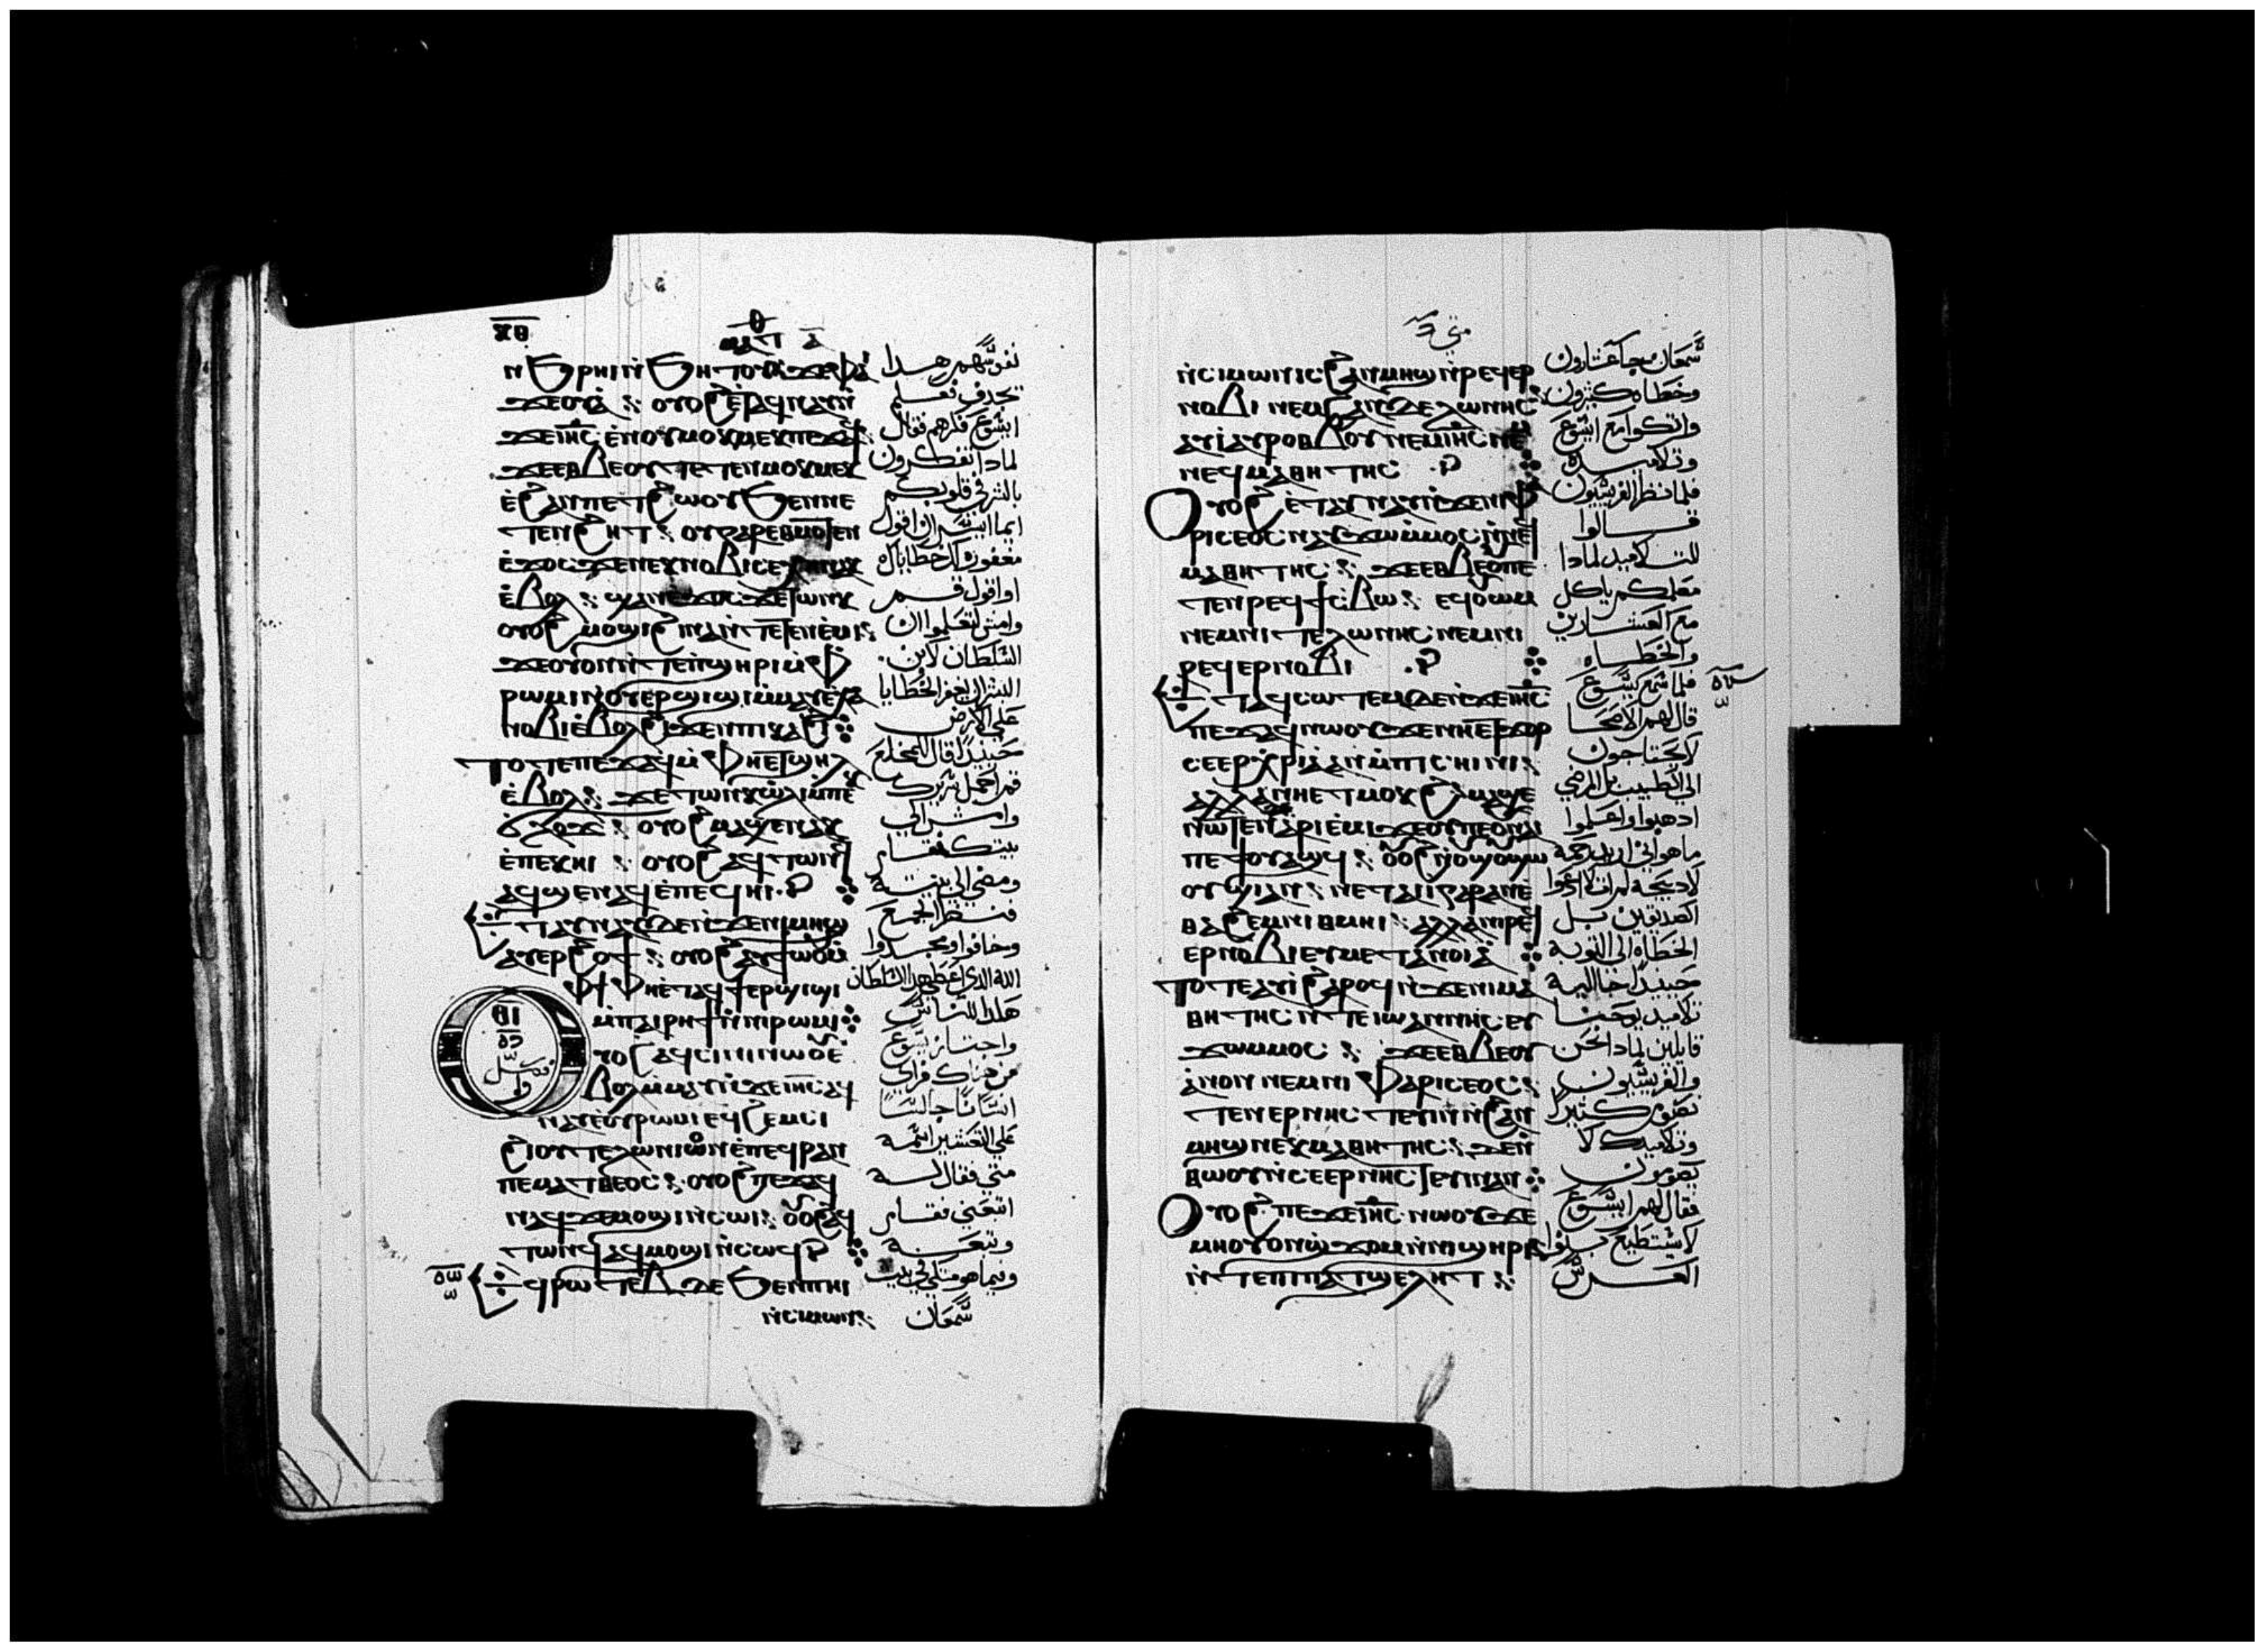 ⲝⲑ
ⲑ
ⲙⲁⲧ ⲁ
ⲛϧⲣⲏⲓⲛ̀ϧⲏⲧⲟⲩϫⲉⲫⲁⲓ
ϫⲉⲟⲩⲁ̀ : ⲟⲩⲟϩⲉ̀ⲧⲁϥⲛⲁⲩⲛ̀
ϫⲉⲓⲏ̅ⲥ̅ ⲉ̀ⲛⲟⲩⲙⲟⲕⲙⲉⲕⲡⲉϫⲁϥ
ϫⲉⲉⲑⲃⲉⲟⲩ ⲧⲉⲧⲉⲛⲙⲟⲕⲙⲉⲕ
ⲉ̀ϩⲁⲛⲡⲉⲧϩⲱⲟⲩϧⲉⲛⲛⲉ
ⲧⲉⲛϩⲏⲧ : ⲟⲩⲅⲁⲣⲉⲑⲙⲟⲧⲉⲛ
ⲉ̀ϫⲟⲥϫⲉⲛⲉⲕⲛⲟⲃⲓⲥⲉⲭⲏⲛⲁⲕ
ⲉ̀ⲃⲟⲗ : ϣⲁⲛⲉ̀ϫⲟⲥϫⲉⲧⲱⲛⲕ
ⲟⲩⲟϩⲙⲟϣⲓ ϩⲓⲛⲁⲛ̀ⲧⲉⲧⲉⲛⲉ̀ⲙⲓ :
ϫⲉⲟⲩⲟⲛⲛ̀ⲧⲉⲡϣⲏⲣⲓⲙ̀ⲫ
ⲣⲱⲙⲓⲛ̀ⲟⲩⲉⲣϣⲓϣⲓⲙ̀ⲙⲁⲩⲉ̀ⲭⲁ
ⲛⲟⲃⲓⲉ̀ⲃⲟⲗϩⲓϫⲉⲛⲡⲓⲕⲁϩⲓ
ⲧⲟⲧⲉⲡⲉϫⲁϥⲙ̀ⲫⲏⲉⲧϣⲏⲗ
ⲉ̀ⲃⲟⲗ : ϫⲉⲧⲱⲛⲕⲱ̀ⲗⲓⲙ̀ⲡⲉ
ϭⲗⲟϫ : ⲟⲩⲟϩⲙⲁϣⲉⲛⲁⲕ
ⲉ̀ⲡⲉⲕⲏⲓ : ⲟⲩⲟϩⲁϥⲧⲱⲛϥ
ⲁϥϣⲉⲛⲁϥⲉ̀ⲡⲉϥⲏⲓ · ⲣ
ⲉⲧⲁⲩⲛⲁⲩⲇⲉⲛ̀ϫⲉⲛⲓⲙⲏϣ
ⲁⲩⲉⲣϩⲟϯ : ⲟⲩⲟϩⲁⲩϯⲱ̀ⲟⲩⲙ̀
ⲫϯⲫⲏⲉⲧⲁϥϯⲉⲣϣⲓϣⲓ
ⲙ̀ⲡⲁⲓⲣⲏϯⲛ̀ⲛⲓⲣⲱⲙⲓ
ⲓⲑ
ⲟⲩⲟϩⲁϥⲥⲓⲛⲓⲛ̀ϫⲉⲓⲏ̅ⲥ̅ ⲉ̀
ⲃⲟⲗⲙ̀ⲙⲁⲩⲛ̀ϫⲉⲓⲏ̅ⲥ̅ⲁϥ
ⲛⲁⲩⲉ̀ⲟⲩⲣⲱⲙⲓⲉϥϩⲉⲙⲥⲓ
ϩⲓⲟⲩⲧⲉⲗⲱⲛⲓⲟⲛⲉ̀ⲡⲉϥⲣⲁⲛ
ⲡⲉⲙⲁⲧⲑⲉⲟⲥ : ⲟⲩⲟϩⲡⲉϫⲁϥ
ⲛⲁϥϫⲉⲙⲟϣⲓⲛ̀ⲥⲱⲓ : ⲟⲩⲟϩⲁϥ
ⲧⲱⲛϥⲁϥⲙⲟϣⲓⲛ̀ⲥⲱϥ ⲣ
ⲉϥⲣⲱⲧⲉⲃⲇⲉϧⲉⲛⲡⲏⲓ
ⲛ̀ⲥⲓⲙⲱⲛ :
نفوسهم هدا
يجدف فعلم
ايسوع فكرهم فقال
لمادا تفكرون
بالشر في قلوبكم
ايما ايسر ان اقول
مغفورة لك خطاياك
او اقول قم
وامش لتعلموا ان
السلطان لابن
البشر ان يغفر الخطايا
على الارض
حينيدا قال للمخلع
قم احمل سريرك
وامش الي
بيتك فقام
ومضى الى بيته
فنظر الجمع
وخافوا ومجدوا
الله الدي اعطى هدا السلطان
هكدا للناس
واجتاز يسوع
من هناك فراى
انسانا جالسا
على التعشير اسمه
متى فقال له
اتبعني فقام
وتبعه
وفيما هو متكي في بيت
سمعان
متى
ⲛ̀ⲥⲓⲙⲱⲛⲓⲥϩⲁⲛⲙⲏϣⲛ̀ⲣⲉϥⲉⲣ
ⲛⲟⲃⲓ ⲛⲉⲙϩⲁⲛⲧⲉⲗⲱⲛⲏⲥ
ⲁⲩⲓ̀ⲁⲩⲣⲟⲑⲃⲟⲩ ⲛⲉⲙⲓⲏ̅ⲥ̅ⲛⲉ
ⲛⲉϥⲙⲁⲑⲏⲧⲏⲥ · ⲣ
ⲟⲩⲟϩ ⲉ̀ⲧⲁⲩⲛⲁⲩⲛ̀ϫⲉⲛⲓⲫⲁ
ⲣⲓⲥⲉⲟⲥⲛⲁⲩϫⲱⲙ̀ⲙⲟⲥⲛ̀ⲛⲉϥ
ⲙⲁⲑⲏⲧⲏⲥ : ϫⲉⲉⲑⲃⲉⲟⲩⲡⲉ
ⲧⲉⲛⲣⲉϥϯⲥⲃⲱ : ⲉϥⲟⲩⲱⲙ
ⲛⲉⲙⲛⲓⲧⲉⲗⲱⲛⲏⲥⲛⲉⲙⲛⲓ
ⲣⲉϥⲉⲣⲛⲟⲃⲓ · ⲣ
ⲉⲧⲁϥⲥⲱⲧⲉⲙⲇⲉⲛ̀ϫⲉⲓⲏ̅ⲥ̅
ⲡⲉϫⲁϥⲛⲱⲟⲩϫⲉⲛⲏⲉⲧϫⲟⲣ
ⲥⲉⲉⲣⲭⲣⲓⲁⲁⲛⲙ̀ⲡⲓⲥⲏⲓⲛⲓ :
ⲁⲗⲗⲁⲛⲏⲉⲧⲙⲟⲕϩⲙⲁϣⲉ
ⲛⲱⲧⲉⲛⲁⲣⲓⲉ̀ⲙⲓϫⲉⲟⲩⲡⲉⲟⲩⲛⲁⲓ
ⲡⲉϯⲟⲩⲁϣϥ : ⲟⲩⲟϩⲛ̀ⲟⲩϣⲟⲩϣⲱ
ⲟⲩϣⲓⲁⲛ : ⲛⲉⲧⲁⲓⲓ̀ⲅⲁⲣⲁⲛⲉ̀
ⲑⲁϩⲉⲙⲛⲓⲑⲙⲏⲓ : ⲁⲗⲗⲁⲛⲓⲣⲉϥ
ⲉⲣⲛⲟⲃⲓⲉⲩⲙⲉⲧⲁⲛⲟⲓⲁ̀
ⲧⲟⲧⲉⲁⲩⲓ̀ϩⲁⲣⲟϥⲛ̀ϫⲉⲛⲓⲙⲁ
ⲑⲏⲧⲏⲥⲛ̀ⲧⲉⲓⲱⲁⲛⲛⲏⲥⲉⲩ
ϫⲱⲙ̀ⲙⲟⲥ : ϫⲉⲉⲑⲃⲉⲟⲩ
ⲁⲛⲟⲛ ⲛⲉⲙⲛⲓ ⲫⲁⲣⲓⲥⲉⲟⲥ :
ⲧⲉⲛⲉⲣⲛⲏⲥⲧⲉⲩⲓⲛⲛ̀ϩⲁⲛ
ⲙⲏϣⲛⲉⲕⲙⲁⲑⲏⲧⲏⲥ : ϫⲉⲛ̀
ⲑⲱⲟⲩⲛ̀ⲥⲉⲉⲣⲛⲏⲥⲧⲉⲩⲓⲛⲁⲛ
ⲟⲩⲟϩ ⲡⲉϫⲉⲓⲏ̅ⲥ̅ ⲛⲱⲟⲩϫⲉ
ⲙⲏⲟⲩⲟⲛϣ̀ϫⲟⲙⲛ̀ⲛⲓϣⲏⲣⲓ
ⲛ̀ⲧⲉⲡⲓⲡⲁⲧϣⲉⲗⲏⲧ :
سمعان جا عشارون
وخطاه كثيرون
واتكوا مع ايسوع
وتلاميده
فلما نظر الفريسيون
قالوا
لتلاميده لمادا
معلمكم ياكل
مع العشارين
والخطاه
فلما سمع يسوع
قال لهم الاصحا
لا يحتاجون
الى الطبيب بل المرضى
ادهبوا واعلموا
ما هو اني اريد رحمة
لا دبيحة لم ات لادعوا
الصديقين بل
الخطاة الى التوبة
حينيدا جا اليه
تلاميد يوحنا
قايلين لمادا نحن
والفريسيون
نصوم كثيرا
وتلاميدك لا
يصومون
فقال لهم ايسوع
لا يستطيع بنوا
العرس